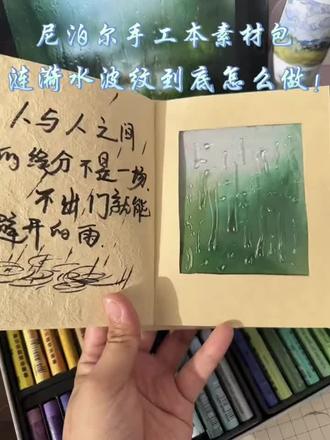 尼泊尔手工本素材包
涟漪水波纹到底怎么做!
人与人之间
的缘分不是一场
不出门就能
避开的雨.